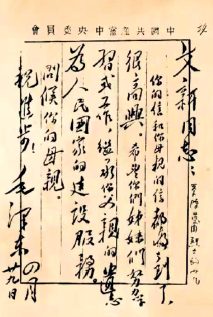 中國共產黨中央委員會
文新同志:
你的信和你母親的信都收到了,
很高興。希望你們姊妹們努力學
習或工作,繼承你父親的遺志,
為人民國家的建設服務。
問候你的母親。
祝進步!
毛澤東
四月
廿九日